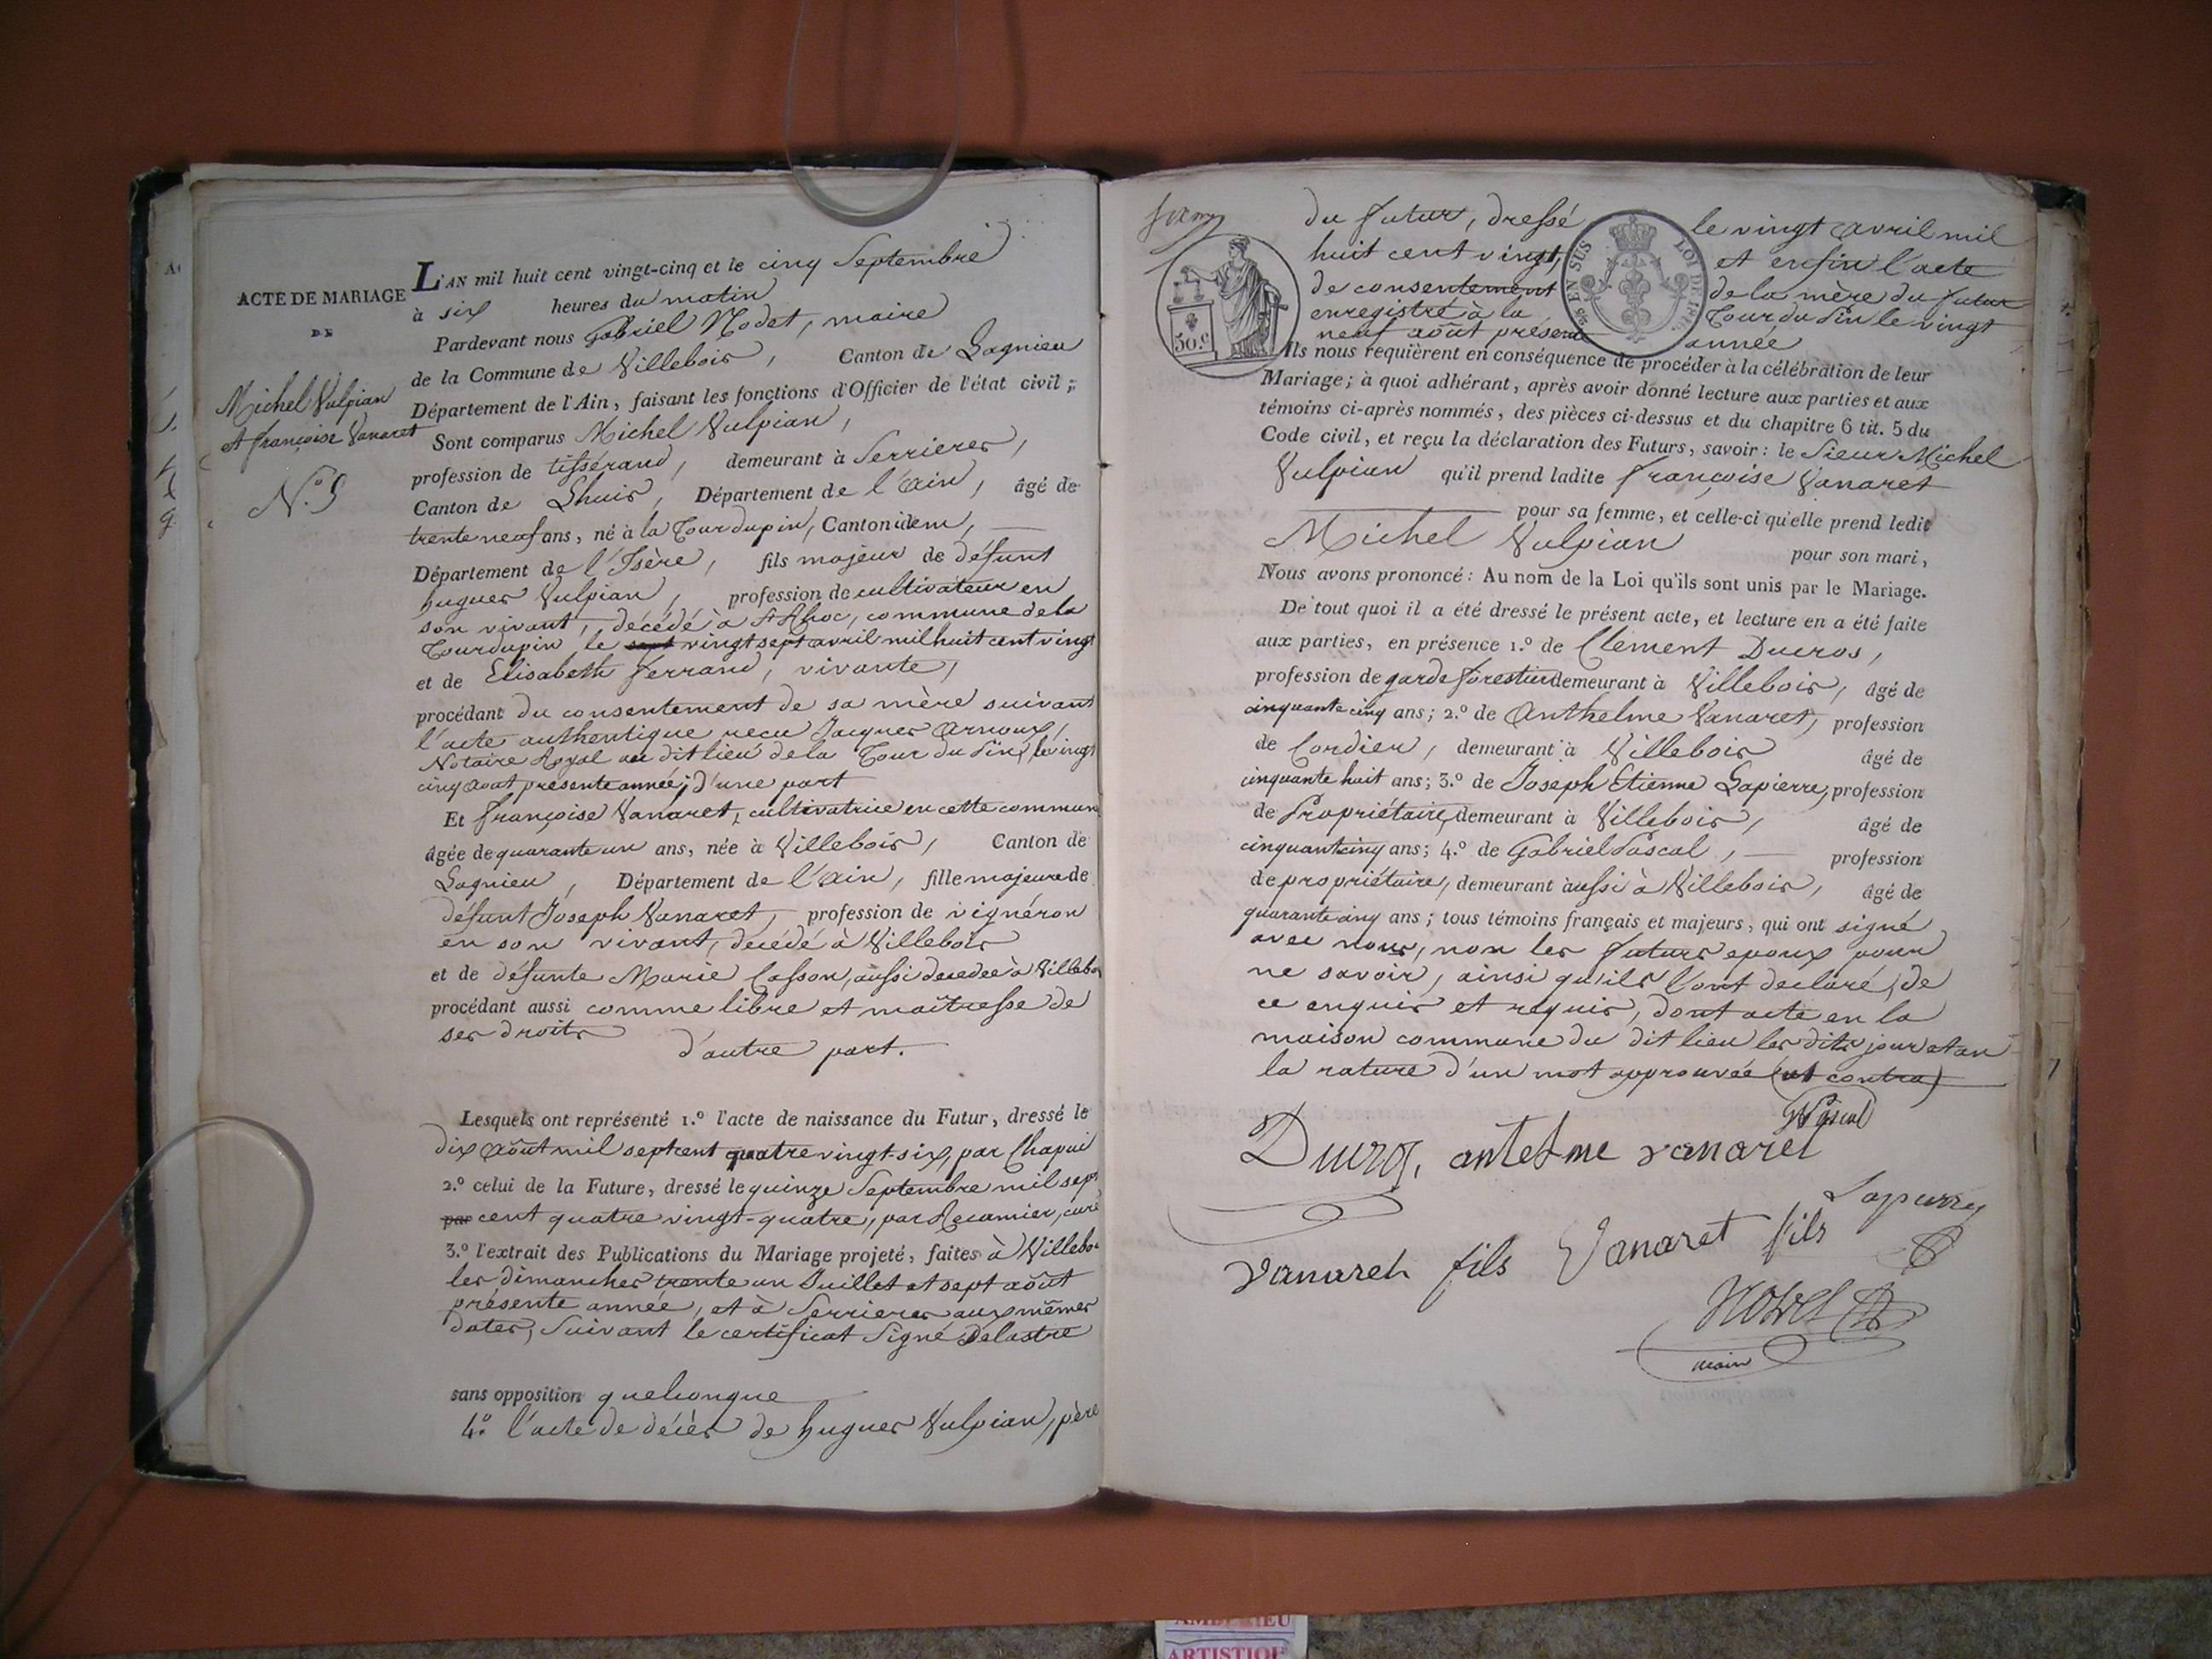 ACTE DE MARIAGE
DE
Michel Vulpian
et françoise Vanaret
N.º 9
L'AN mil huit cent vingt-cinq et le cinq Septembre
à six heures du matin
Pardevant nous Gabriel Nodet, maire
de la Commune de Villebois, Canton de Lagnieu
Département de l'Ain, faisant les fonctions d'Officier de l'état civil;
Sont comparus Michel Vulpian,
profession de tissérand, demeurant à Serrieres,
Canton de Lhuis, Département de l'ain, âgé de
trente neuf ans, né à la Tourdupin, Canton idem,
Département de l'Isère, fils majeur de défunt
hugues Vulpian, profession de cultivateur en
son vivant, décédé à St Roc, commune de la
Tourdupin le sept vingt sept avril mil huit cent vingt
et de Elisabeth ferrand, vivante,
procédant du consentement de sa mère suivant
l'acte authentique recu Jacques Arnoux,
Notaire Royal au dit lieu de la Tour du Pin, le vingt
cinq aout presente année; d'une part
Et françoise Vanaret, cultivatrice en cette commune
âgée de quarante un ans, née à Villebois, Canton de
Lagnieu, Département de l'ain, fille majeure de
défunt Joseph Vanaret, profession de vignéron
en son vivant, décédé à Villebois
et de défunte Marie Casson, aussi decedée à Villebois
procédant aussi comme libre et maîtresse de
ses droits
d'autre part.
Lesquels ont représenté 1.º l'acte de naissance du Futur, dressé le
dix août mil sept cent quatre vingt-six, par Chapui
2.º celui de la Future, dressé le quinze Septembre mil sept
par cent quatre vingt-quatre, par Recamier, curé
3.º l'extrait des Publications du Mariage projeté, faites à Villebois
les dimanches trente un Juillet et sept août
présente année, et à Serrieres aux mêmes
dates, Suivant le certificat Signé Delastre
sans opposition quelconque
4.º l'acte de décès de hugues Vulpian, père
du futur, dressé le vingt avril mil
huit cent vingt, et enfin l'acte
de consentement de la mère du futur
enregistré à la Tour du Pin le vingt
neuf août présente année
50.c
EN SUS
LOI DE
Ils nous requièrent en conséquence de procéder à la célébration de leur
Mariage; à quoi adhérant, après avoir donné lecture aux parties et aux
témoins ci-après nommés, des pièces ci-dessus et du chapitre 6 tit. 5 du
Code civil, et reçu la déclaration des Futurs, savoir: le Sieur Michel
Vulpian qu'il prend ladite françoise Vanaret
pour sa femme, et celle-ci qu'elle prend ledit
Michel Vulpian pour son mari,
Nous avons prononcé: Au nom de la Loi qu'ils sont unis par le Mariage.
De tout quoi il a été dressé le présent acte, et lecture en a été faite
aux parties, en présence 1.º de Clement Ducros,
profession de garde forestier demeurant à Villebois, âgé de
cinquante cinq ans; 2.º de Anthelme Vanaret, profession
de Cordier, demeurant à Villebois âgé de
cinquante huit ans; 3.º de Joseph Etienne Lapierre, profession
de Propriétaire, demeurant à Villebois, âgé de
cinquante cinq ans; 4.º de Gabriel Pascal, profession
de propriétaire, demeurant aussi à Villebois, âgé de
quarante cinq ans; tous témoins français et majeurs, qui ont signé
avec nous, non les futurs epoux pour
ne savoir, ainsi qu'ils l'ont declaré, de
ce enquis et requis, dont acte en la
maison commune du dit lieu les dits jour et an
la rature d'un mot approuvée (ut contra)
Pascal
Ducros, antelme vanaret
Lapierre
vanaret fils Vanaret fils
Nodet
maire